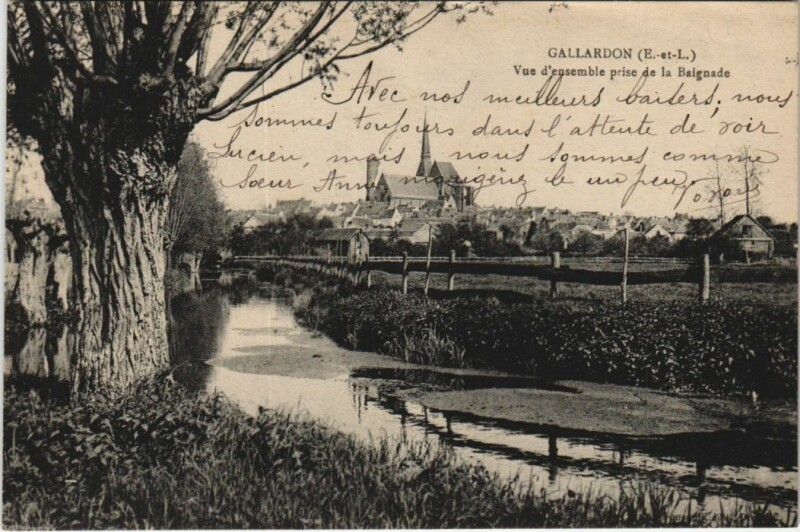 GALLARDON (E.-et-L.)
Vue d'ensemble prise de la Baignade
Avec nos meilleurs baisers, nous
sommes toujours dans l'attente de voir
Lucien, mais nous sommes comme
Sœur Anne mangeng le un peu pour
vous